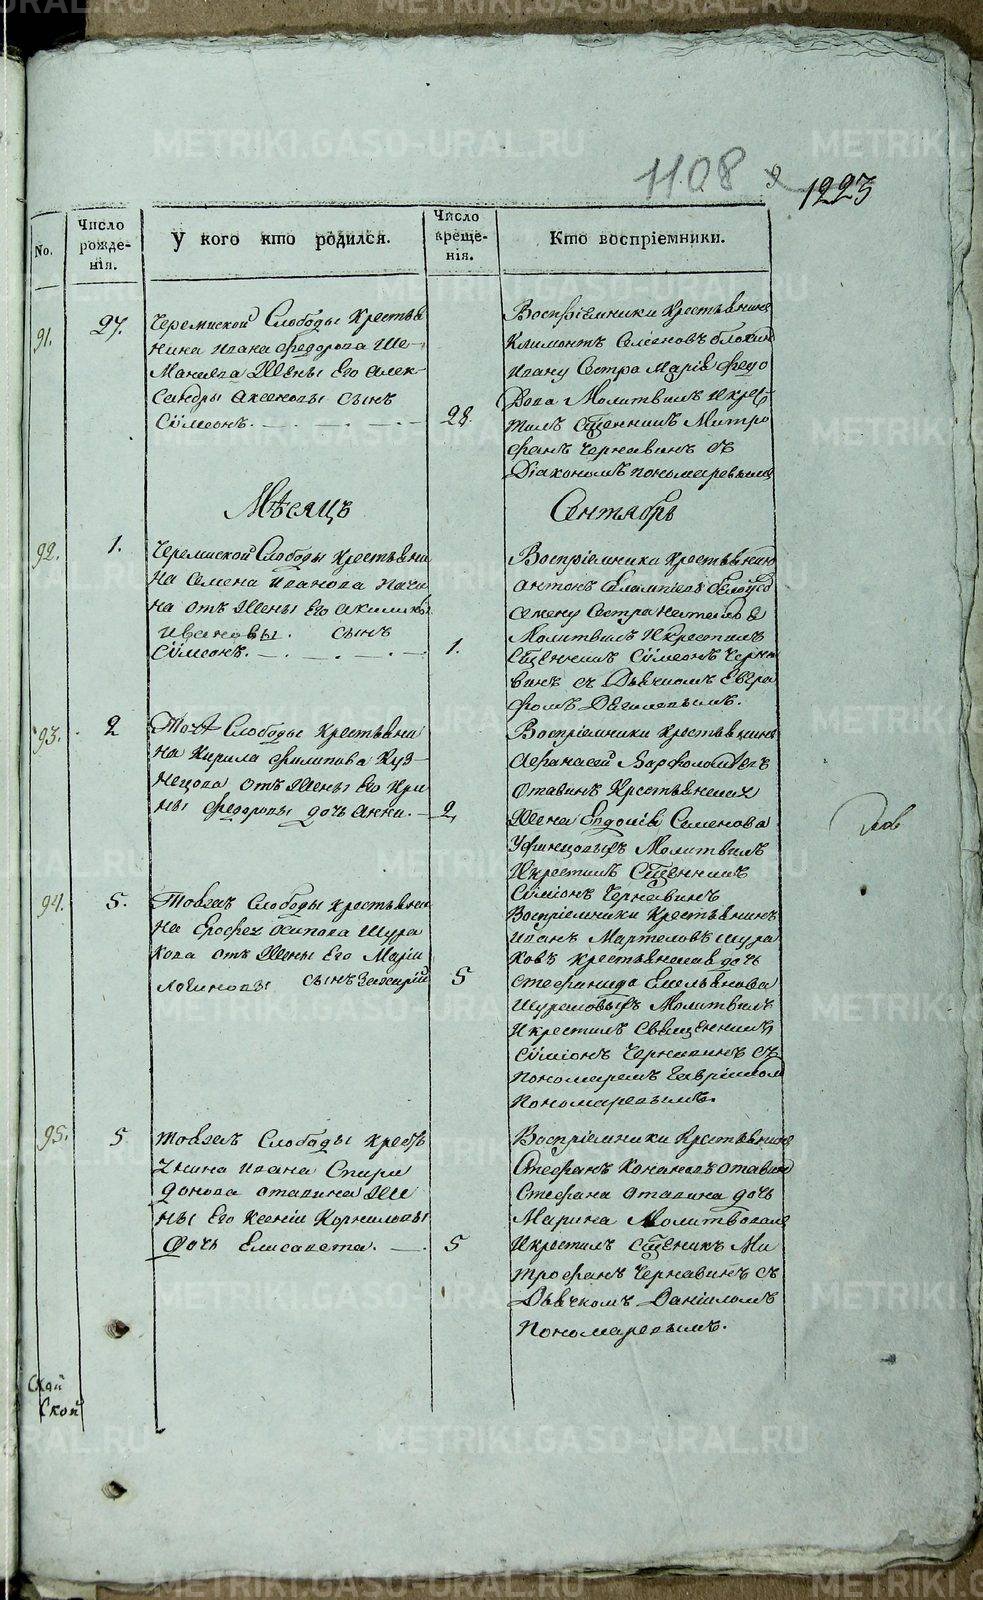 1108
1223
No.
Число рожде-нія.
У кого кто родился.
Число креще-нія.
Кто воспріемники.
91.
27.
Черемиской Слободы Крестья
нина Ивана Федорова Ше-
Жены Его Алек-
сандры Аксеновы сынъ
Сѵмеонъ.
28.
Воспріемники Крестьянинъ
Климонтъ Семеновъ
Ивану Сестра Марія Федо
рова Молитвилъ и крес
тилъ Сщенникъ Митро
фанъ Чернавинъ съ
Діакономъ Пономаревымъ
Мѣсяцъ
Сентябрь
92.
1.
Черемиской Слободы Крестьяни
на Семена Иванова
на отъ Жены Его Акилины
Ивановы. сынъ
Сѵмеонъ.
1.
Воспріемники Крестьянинъ
Антонъ
Семену Сестра
Молитвилъ и крестилъ
Сщенникъ Сѵмеонъ Черна
винъ съ Дьячкомъ Евгра
фомъ
93.
2
Той Слободы Крестьяни
на Кирила Филипова Куз-
нецова отъ Жены Его Ири
ны Федоровы дочь Анна.
2
Воспріемники Крестьянинъ
Афанасей Варфоломѣевъ
Отавинъ Крестьянская
Жена Евдокія Семенова
Молитвилъ
И крестилъ Сщенникъ
Сѵмеонъ Чернавинъ
94.
5.
Тояже Слободы Крестьяни
на Ерофея Осипова Шура
кова отъ Жены Его Маріи
Логиновы сынъ Захарій
5
Воспріемники Крестьянинъ
Иванъ Шура
ковъ крестьянская дочь
Стефанида Емельянова
Молитвилъ
И крестилъ Священникъ
Сѵмеонъ Чернавинъ съ
Пономаремъ Гавріиломъ
Пономаревымъ.
95.
5
Тояже Слободы Кресть
янина Ивана Спири
донова Отавина Же
ны Его Ксеніи Корниловы
Дочь Елисавета.
5
Воспріемники Крестьянинъ
Стефанъ Кононовъ Отавинъ
Стефана Отавина дочь
Марина Молитвовалъ
И крестилъ Сщеникъ Ми
трофанъ Чернавинъ съ
Дьячкомъ Даніиломъ
Пономаревымъ.
Ской
Ской
METRIKI.GASO-URAL.RU